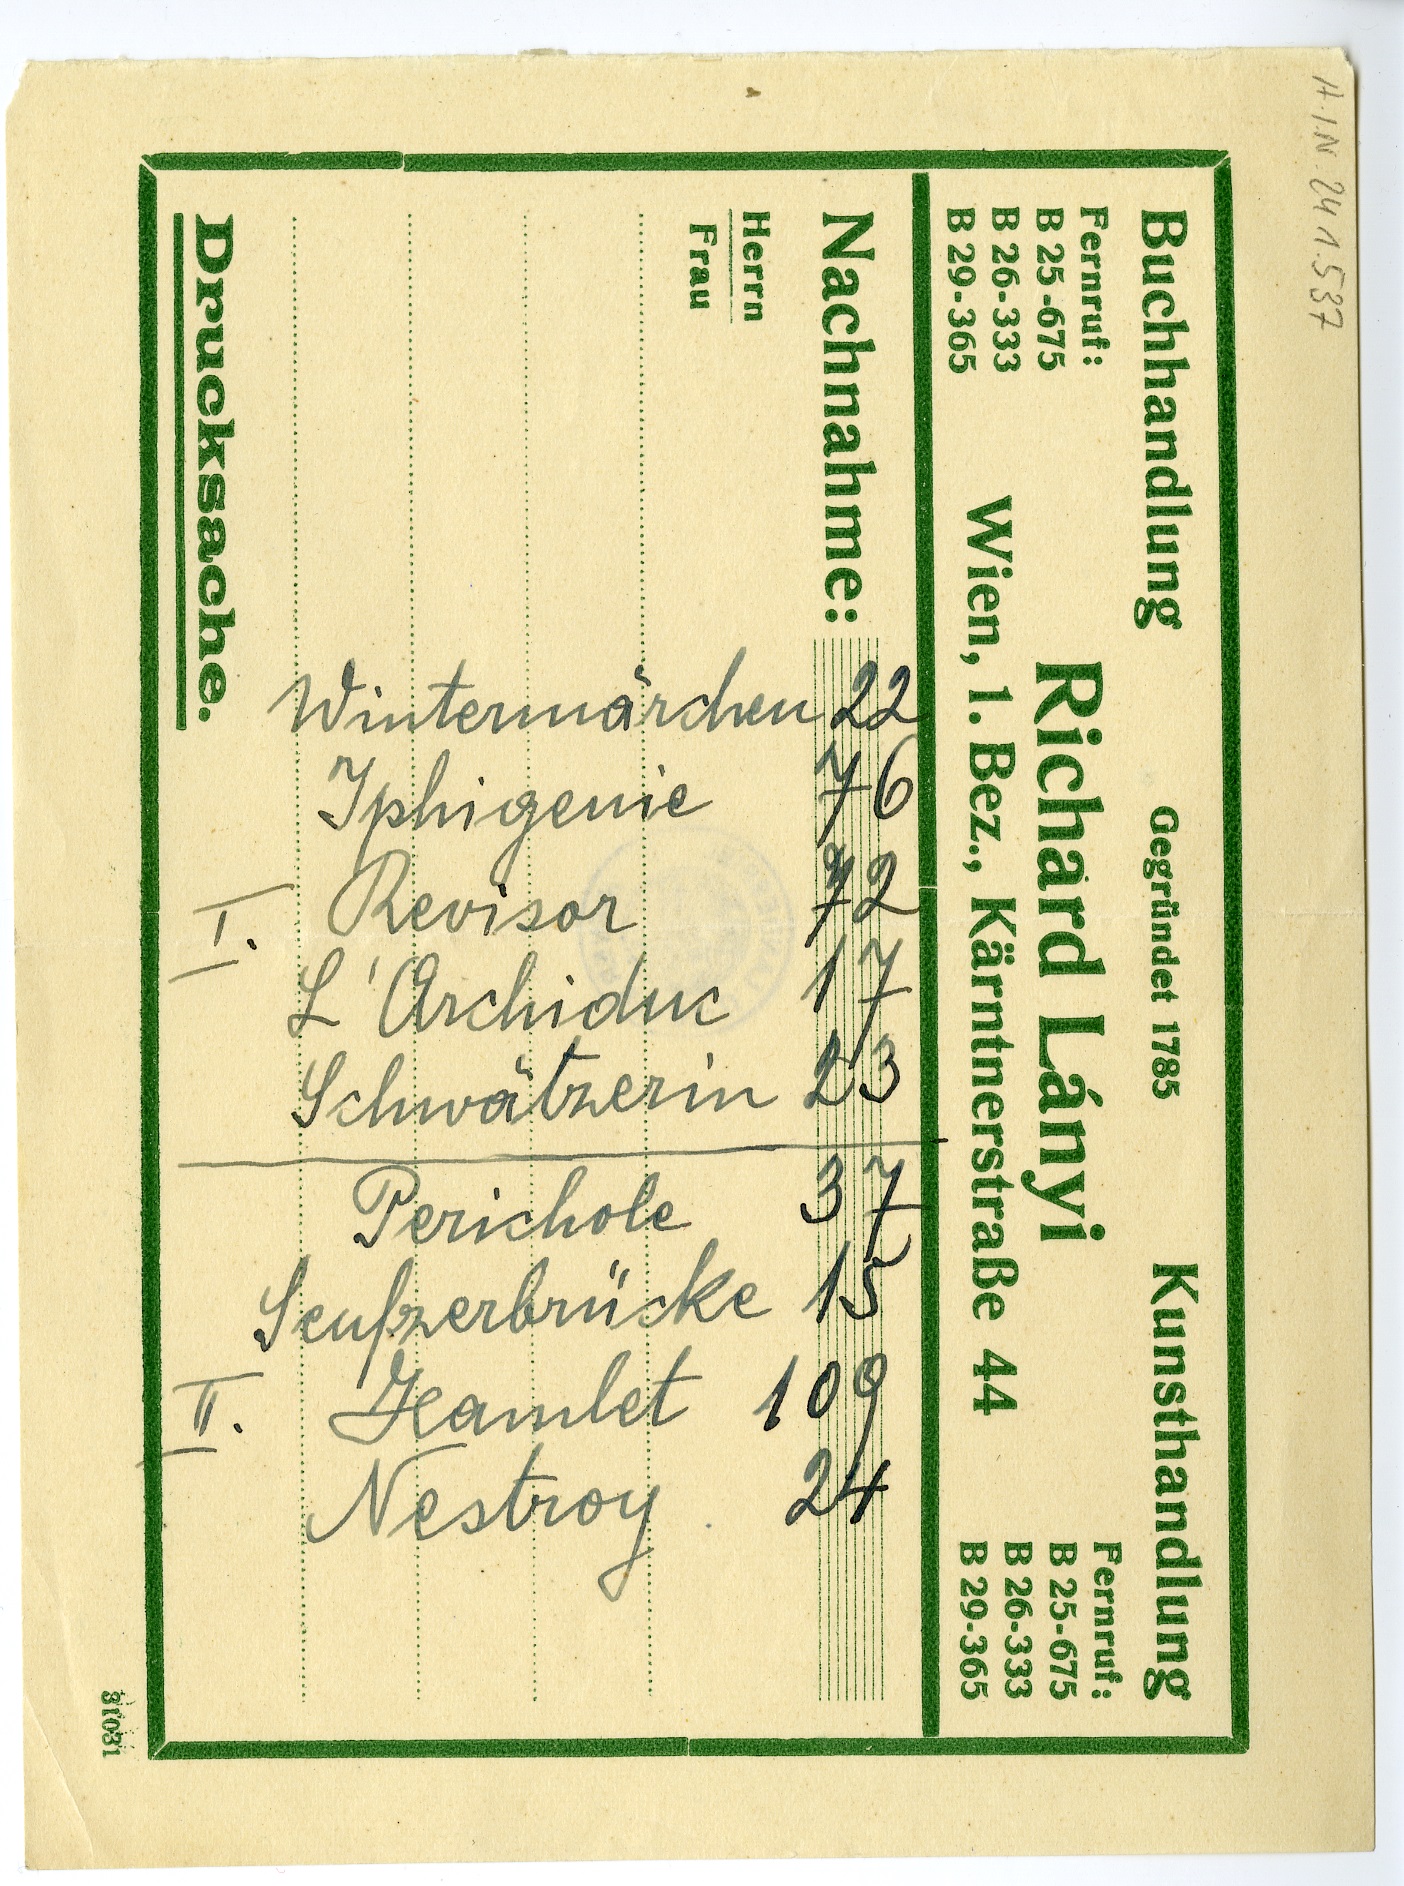 H.I.N. 241.537
Buchhandlung
Gegründet 1785
Kunsthandlung
Fernruf:
B 25-675
B 26-333
B 29-365
Richard Lányi
Wien, 1. Bez., Kärntnerstraße 44
Fernruf:
B 25-675
B 26-333
B 29-365
Nachnahme:
Herrn
Frau
Drucksache.
31031
Wintermärchen 22
Iphigenie 76
I. Revisor 72
L'Archiduc 17
Schwätzerin 23
Perichole 37
Seufzerbrücke 15
II. Hamlet 109
Nestroy 24